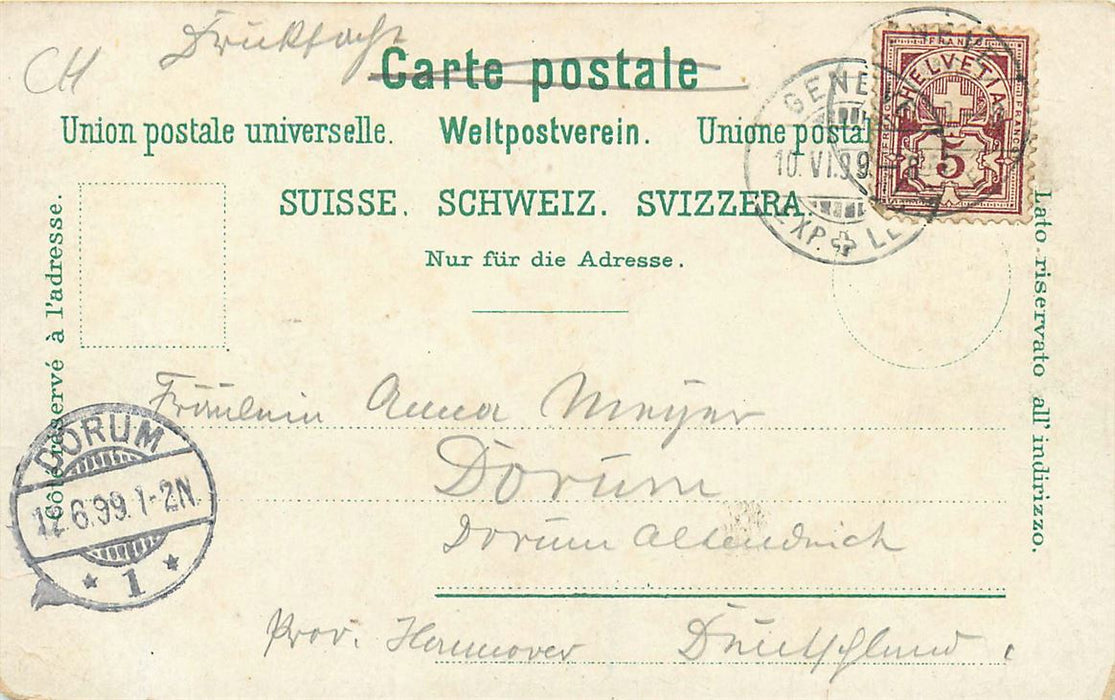 CH Drucksache
Carte postale
Union postale universelle. Weltpostverein. Unione postal
SUISSE. SCHWEIZ. SVIZZERA.
Nur für die Adresse.
Côté réservé à l'adresse.
Lato riservato all' indirizzo.
FRANCO
HELVETIA
5
GENÈV
10.VI.99.–8
EXP. LE
Fräulein Anna Meyer
Dorum
Dorum Altendeich
Prov. Hannover Deutschland.
DORUM
12.6.99.1-2N.
* 1 *